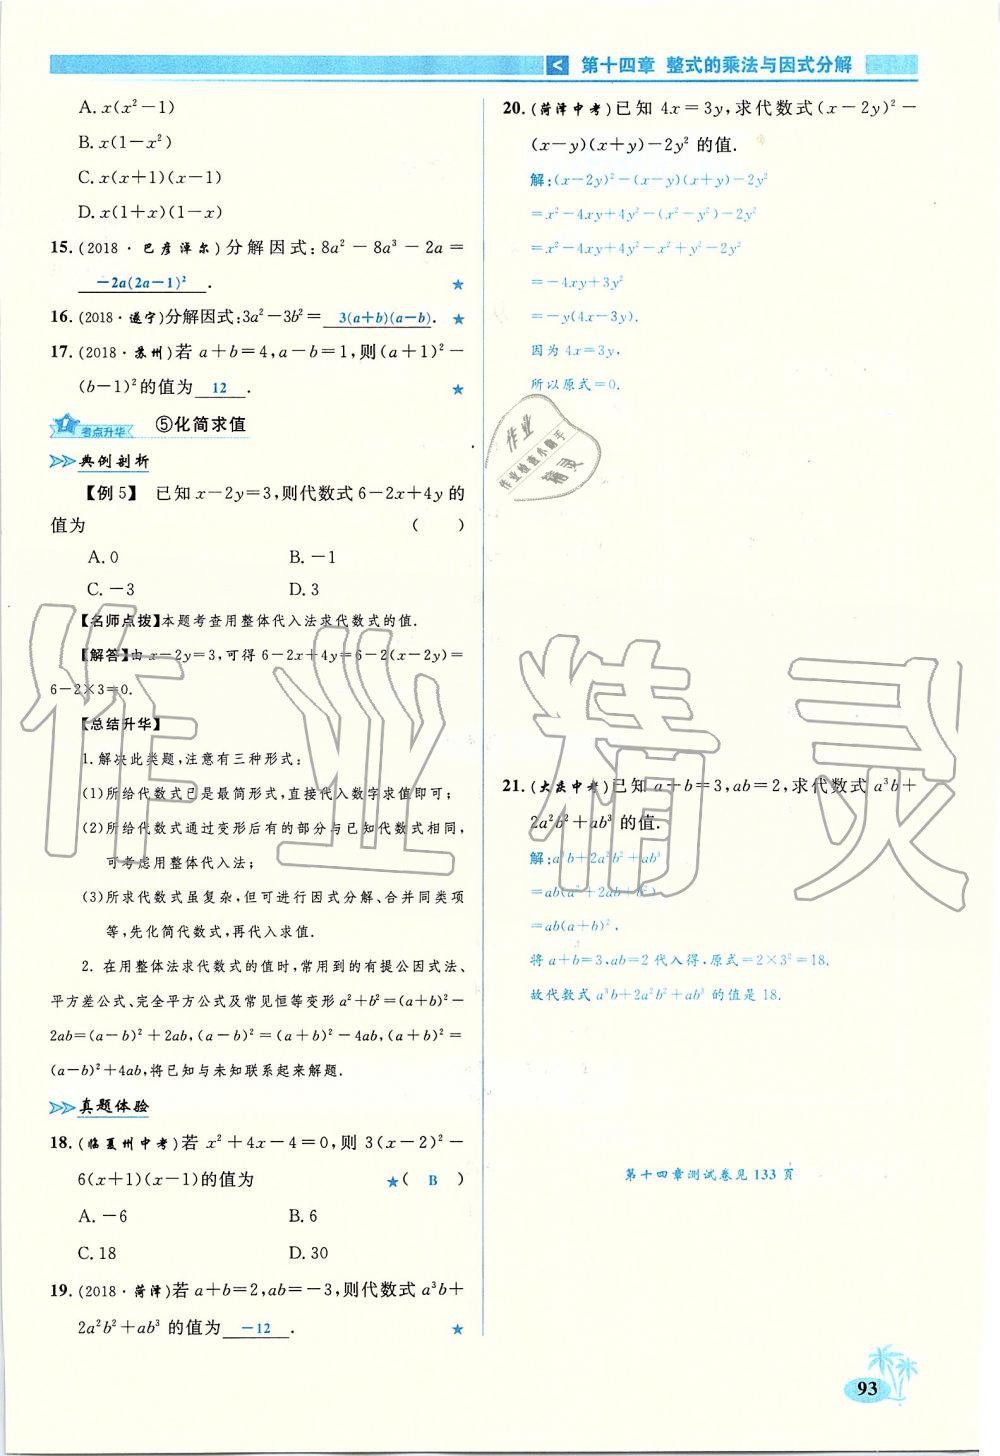 第十四章 整式的乘法与因式分解
A. x(x²－1)
B. x(1－x²)
C. x(x＋1)(x－1)
D. x(1＋x)(1－x)
15. (2018·巴彦淖尔)分解因式:8a²－8a³－2a＝
－2a(2a－1)² . ★
16. (2018·遂宁)分解因式:3a²－3b²＝ 3(a＋b)(a－b). ★
17. (2018·苏州)若 a＋b＝4,a－b＝1,则(a＋1)²－
(b－1)²的值为 12 . ★
考点升华 ⑤化简求值
典例剖析
【例5】 已知 x－2y＝3,则代数式 6－2x＋4y 的
值为 ( )
A. 0 B. －1
C. －3 D. 3
【名师点拨】本题考查用整体代入法求代数式的值.
【解答】由 x－2y＝3,可得 6－2x＋4y＝6－2(x－2y)＝
6－2×3＝0.
【总结升华】
1. 解决此类题,注意有三种形式:
(1)所给代数式已是最简形式,直接代入数字求值即可;
(2)所给代数式通过变形后有的部分与已知代数式相同,
可考虑用整体代入法;
(3)所求代数式虽复杂,但可进行因式分解、合并同类项
等,先化简代数式,再代入求值.
2. 在用整体法求代数式的值时,常用到的有提公因式法、
平方差公式、完全平方公式及常见恒等变形 a²＋b²＝(a＋b)²－
2ab＝(a－b)²＋2ab,(a－b)²＝(a＋b)²－4ab,(a＋b)²＝
(a－b)²＋4ab,将已知与未知联系起来解题.
真题体验
18. (临夏州中考)若 x²＋4x－4＝0,则 3(x－2)²－
6(x＋1)(x－1)的值为 ★( B )
A. －6 B. 6
C. 18 D. 30
19. (2018·菏泽)若 a＋b＝2,ab＝－3,则代数式 a³b＋
2a²b²＋ab³ 的值为 －12 . ★
20. (菏泽中考)已知 4x＝3y,求代数式(x－2y)²－
(x－y)(x＋y)－2y² 的值.
解:(x－2y)²－(x－y)(x＋y)－2y²
＝x²－4xy＋4y²－(x²－y²)－2y²
＝x²－4xy＋4y²－x²＋y²－2y²
＝－4xy＋3y²
＝－y(4x－3y).
因为 4x＝3y,
所以原式＝0.
作业
作业检查小助手
精灵
21. (大庆中考)已知 a＋b＝3,ab＝2,求代数式 a³b＋
2a²b²＋ab³ 的值.
解:a³b＋2a²b²＋ab³
＝ab(a²＋2ab＋b²)
＝ab(a＋b)².
将 a＋b＝3,ab＝2 代入得,原式＝2×3²＝18.
故代数式 a³b＋2a²b²＋ab³ 的值是 18.
第十四章测试卷见 133 页
作业精灵
93